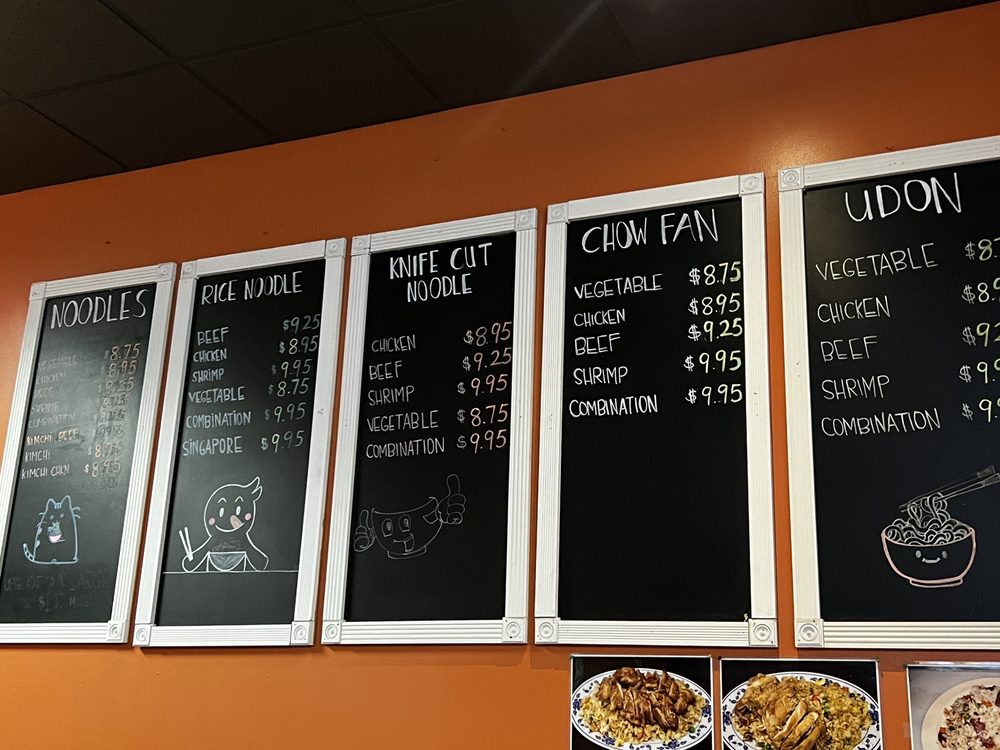 NOODLES
VEGETABLE $8.75
CHICKEN 8.95
BEEF
SHRIMP
COMBINATION
KIMCHI BEEF
KIMCHI
KIMCHI CHKN $8.95
RICE NOODLE
BEEF $9.25
CHICKEN $8.95
SHRIMP $9.95
VEGETABLE $8.75
COMBINATION $9.95
SINGAPORE $9.95
KNIFE CUT
NOODLE
CHICKEN $8.95
BEEF $9.25
SHRIMP $9.95
VEGETABLE $8.75
COMBINATION $9.95
CHOW FAN
VEGETABLE $8.75
CHICKEN $8.95
BEEF $9.25
SHRIMP $9.95
COMBINATION $9.95
UDON
VEGETABLE
CHICKEN
BEEF
SHRIMP
COMBINATION